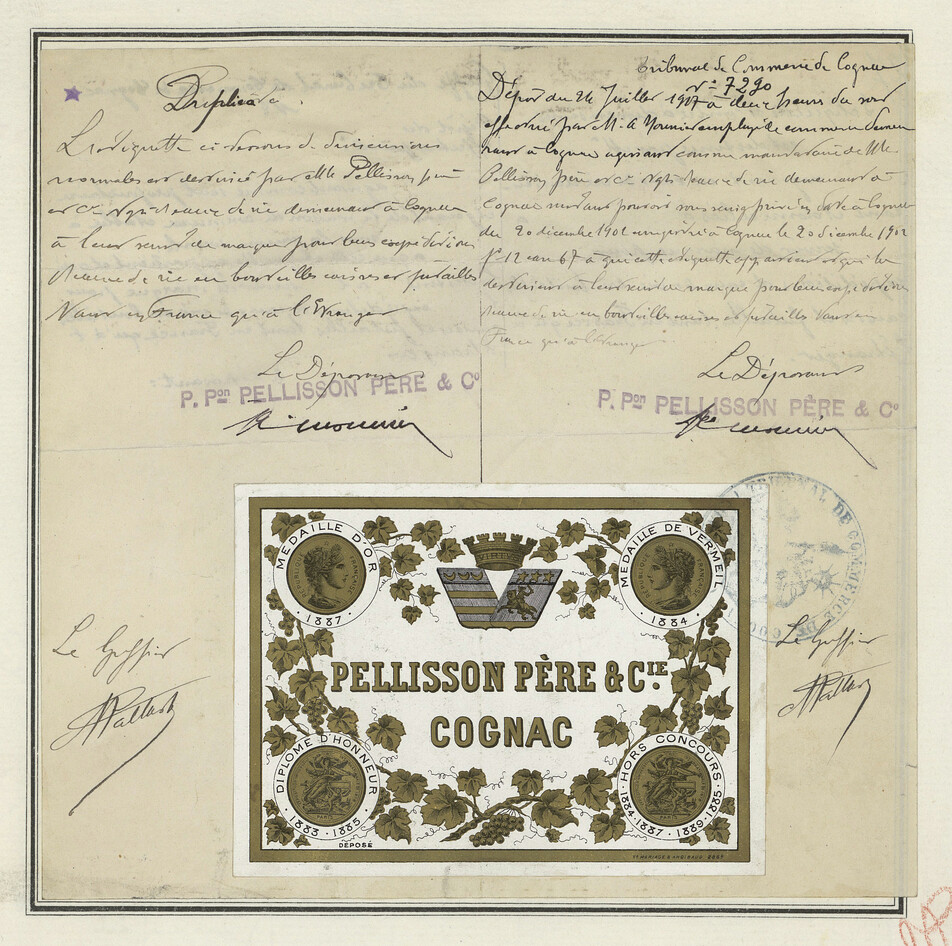 Duplicata.
La vignette ci-dessous de dimensions
normales est destinée par MM. Pellisson père
et Cie Négts d'eaux de vie demeurant à Cognac
à leur servir de marque pour leurs expéditions
d'eaux de vie en bouteilles caisses et futailles
tant en France qu'à l'Etranger
Le Déposant
P. Pon PELLISSON PÈRE & Co
Le Greffier
Tribunal de Commerce de Cognac
No 7290
Dépôt du 24 Juillet 1907 à deux heures du soir
effectué par M. A. Monnier employé de commerce demeu
rant à Cognac agissant comme mandataire de MM.
Pellisson père et Cie Négts d'eaux de vie demeurant à
Cognac suivant pouvoir sous seing privé en date à Cognac
du 20 décembre 1902 enregistré à Cognac le 20 décembre 1902
fo 12 case 67 à qui cette vignette appartient et qui la
destinent à leur servir de marque pour leurs expéditions
d'eaux de vie en bouteilles caisses et futailles tant en
France qu'à l'étranger
Le Déposant
P. Pon PELLISSON PÈRE & Co
Le Greffier
TRIBUNAL DE COMMERCE DE COGNAC
MÉDAILLE D'OR
1887
MÉDAILLE DE VERMEIL
1884
RÉPUBLIQUE FRANÇAISE
RÉPUBLIQUE FRANÇAISE
PELLISSON PÈRE & CIE.
COGNAC
DIPLÔME D'HONNEUR
1883 · 1885
HORS CONCOURS
1884 · 1887 · 1889 · 1885
DÉPOSÉ